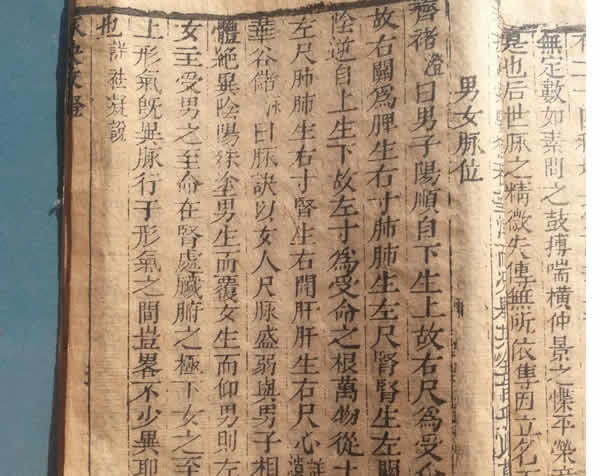 無定數如素問之鼓搏喘橫仲景之惵平榮
是也后世脉之精微失傳無所依傳因立名
男女脉位
齊褚澄曰男子陽順自下生上故右尺為受
故右關為脾生右寸肺肺生左尺腎腎生左
陰逆自上生下故左寸為受命之根萬物從土
左尺肺肺生右寸腎生右関肝肝生右尺心
華谷儲泳曰脉訣以女人尺脉盛弱與男子相
體絶異陰陽殊塗男生而覆女生而仰男則左
女主受男之至命在腎處臟腑之極下女之至
上形氣既異脉行于形氣之間豈畧不少異耶
也詳杜疑說